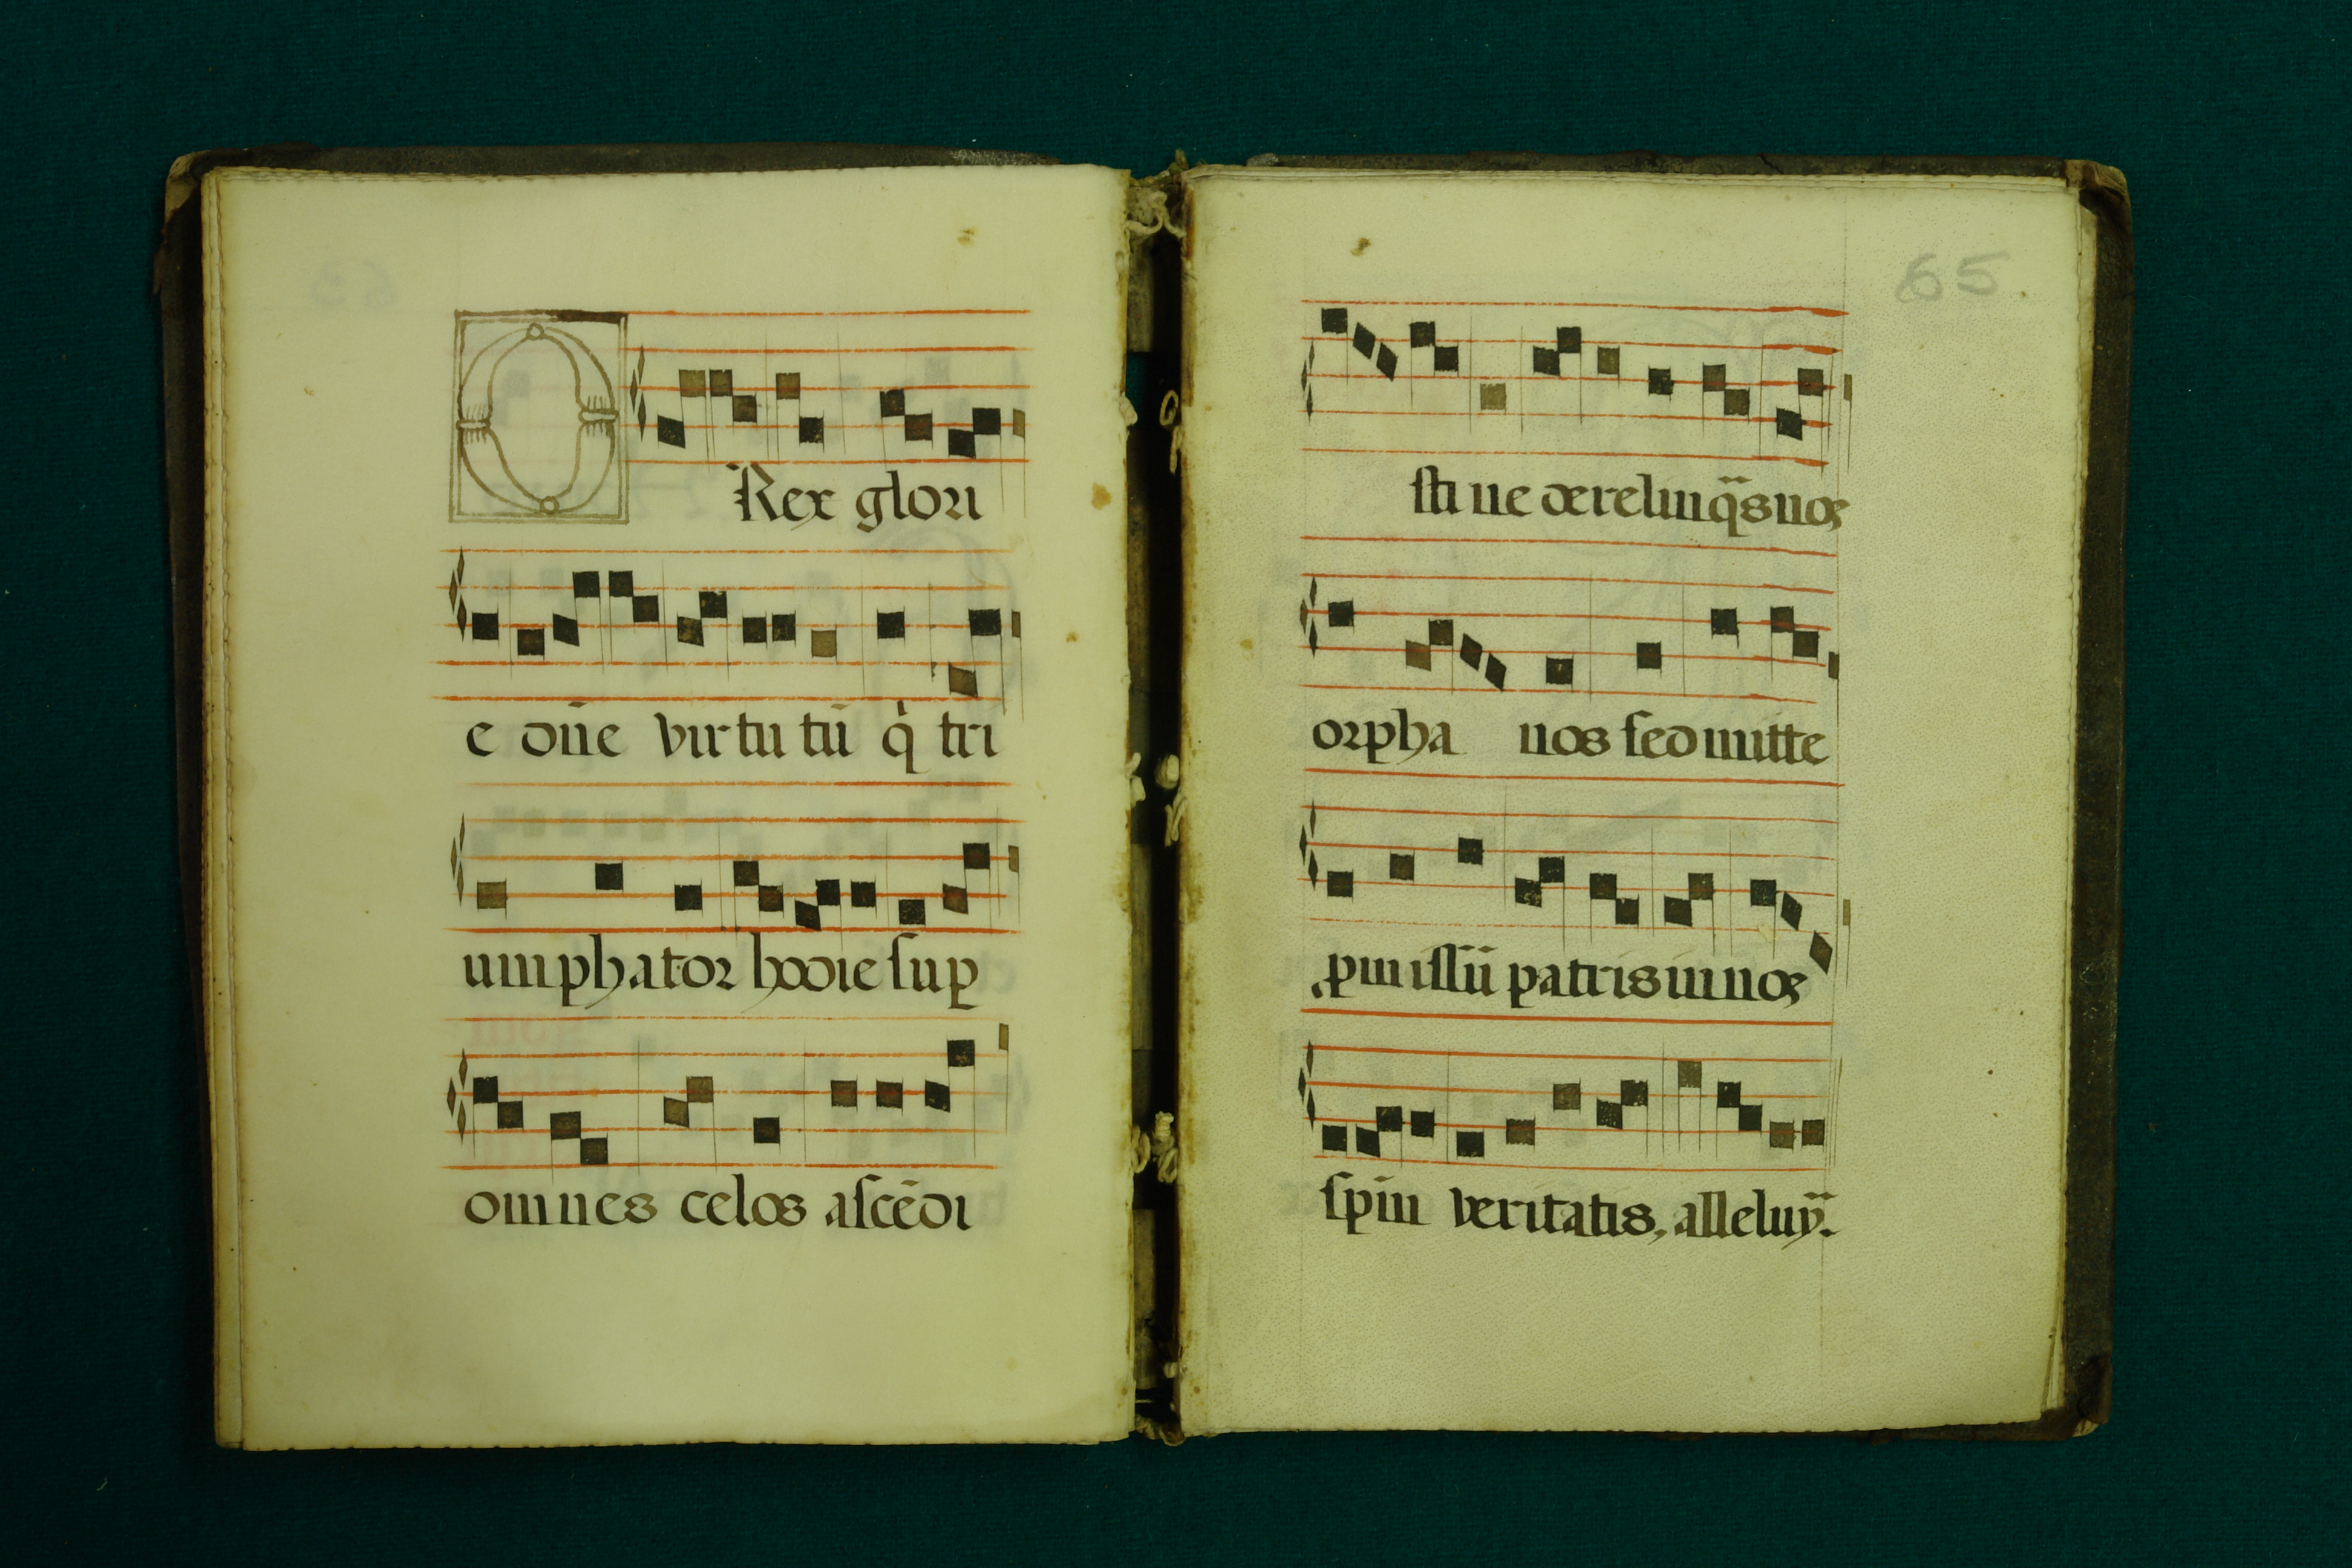 O Rex glori
e dñe virtutũ q̇ tri
umphator hodie sup̱
omnes celos ascẽdi
65
sti ne derelinq̃s nos
orpha nos sed mitte
ꝓmissũ patris in nos
spm̃ veritatis, alleluỹ.